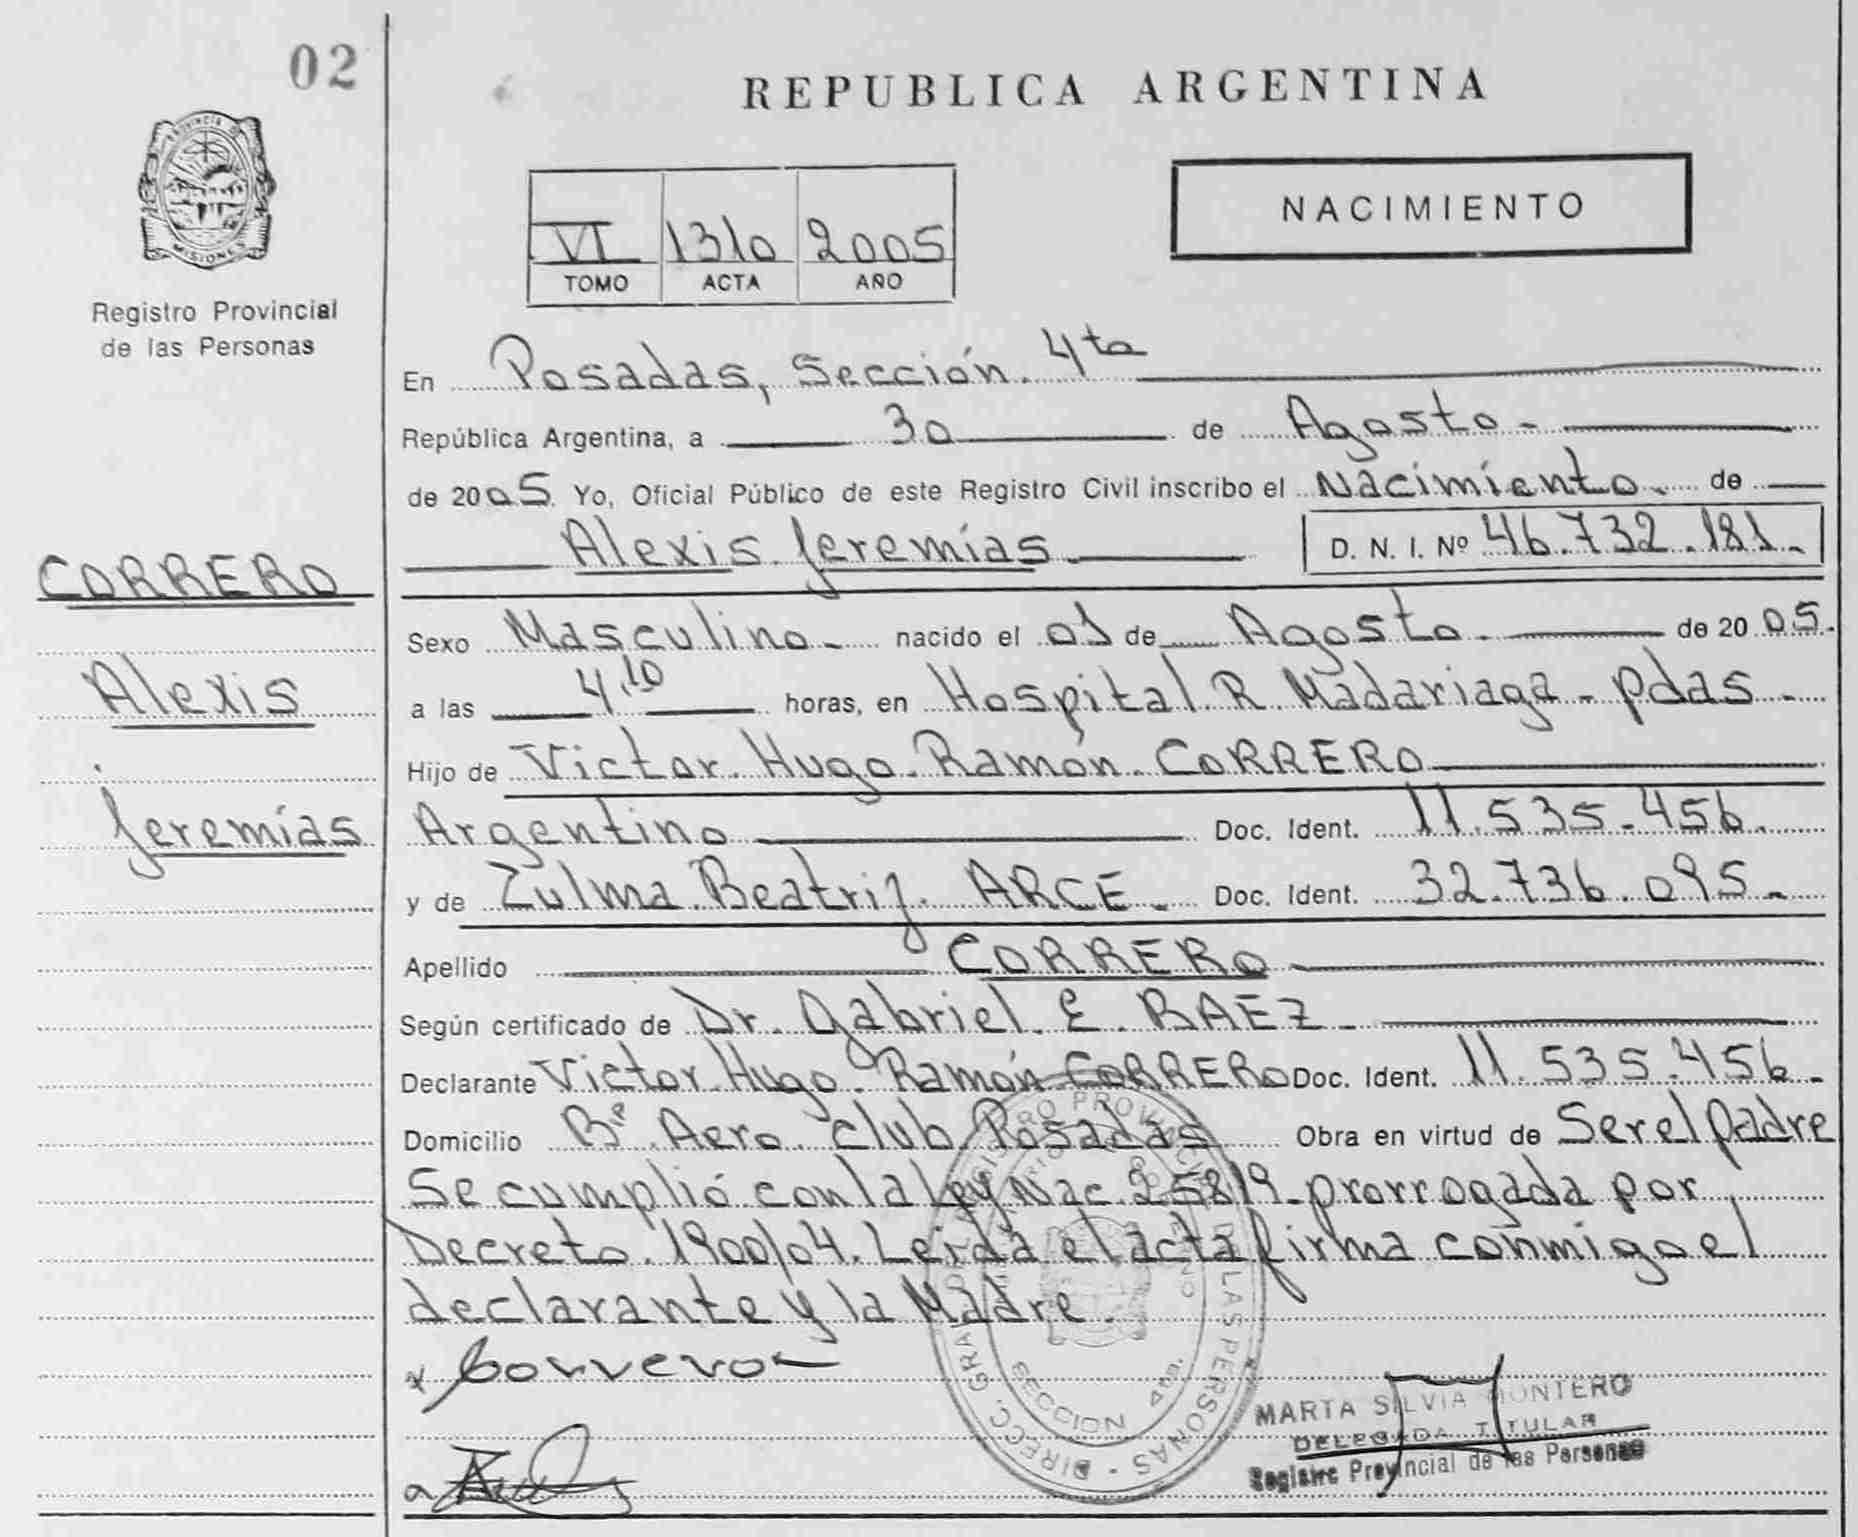 02
PROVINCIA DE
MISIONES
Registro Provincial
de las Personas
CORRERO
Alexis
Jeremías
REPUBLICA ARGENTINA
VI 1310 2005
TOMO ACTA AÑO
NACIMIENTO
En Posadas, Sección 4ta
República Argentina, a 30 de Agosto
de 2005 Yo, Oficial Público de este Registro Civil inscribo el Nacimiento de
Alexis Jeremías D. N. I. Nº 46.732.181
Sexo Masculino nacido el 01 de Agosto de 2005.
a las 4,10 horas, en Hospital R. Madariaga - Pdas -
Hijo de Victor Hugo Ramón CORRERO
Argentino Doc. Ident. 11.535.456
y de Zulma Beatriz ARCE Doc. Ident. 32.736.095
Apellido CORRERO
Según certificado de Dr. Gabriel E. BAEZ
Declarante Victor Hugo Ramón CORRERO Doc. Ident. 11.535.456
Domicilio Bº Aero Club Posadas Obra en virtud de Ser el padre
Se cumplió con la Ley Nac 25819 prorrogada por
Decreto 1900/04. Leída el acta firma conmigo el
declarante y la Madre.
x Correro
MARTA SILVIA MONTERO
DELEGADA TITULAR
Registro Provincial de las Personas